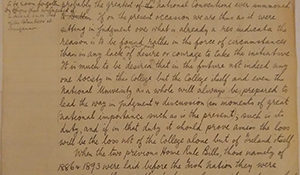 probably the greatest of the national Conventions ever summoned
in Dublin. If on the present occasion we are thus as it were
sitting in judgment on what is already a res judicata the
reason is to be found rather in the force of circumstances
than in any lack of desire or courage to take the initiative.
It is much to be desired that in the future not indeed any
one society in this College but the College itself and even the
National University as a whole will always be prepared to
lead the way in judgment & discussion in moments of great
national importance such as is the present; such is its
duty, and if in that duty it should prove amiss the loss
will be the loss not of the College alone but of Ireland itself.
When the two previous Home Rule Bills, those namely of
1886 & 1893 were laid before the Irish Nation they were